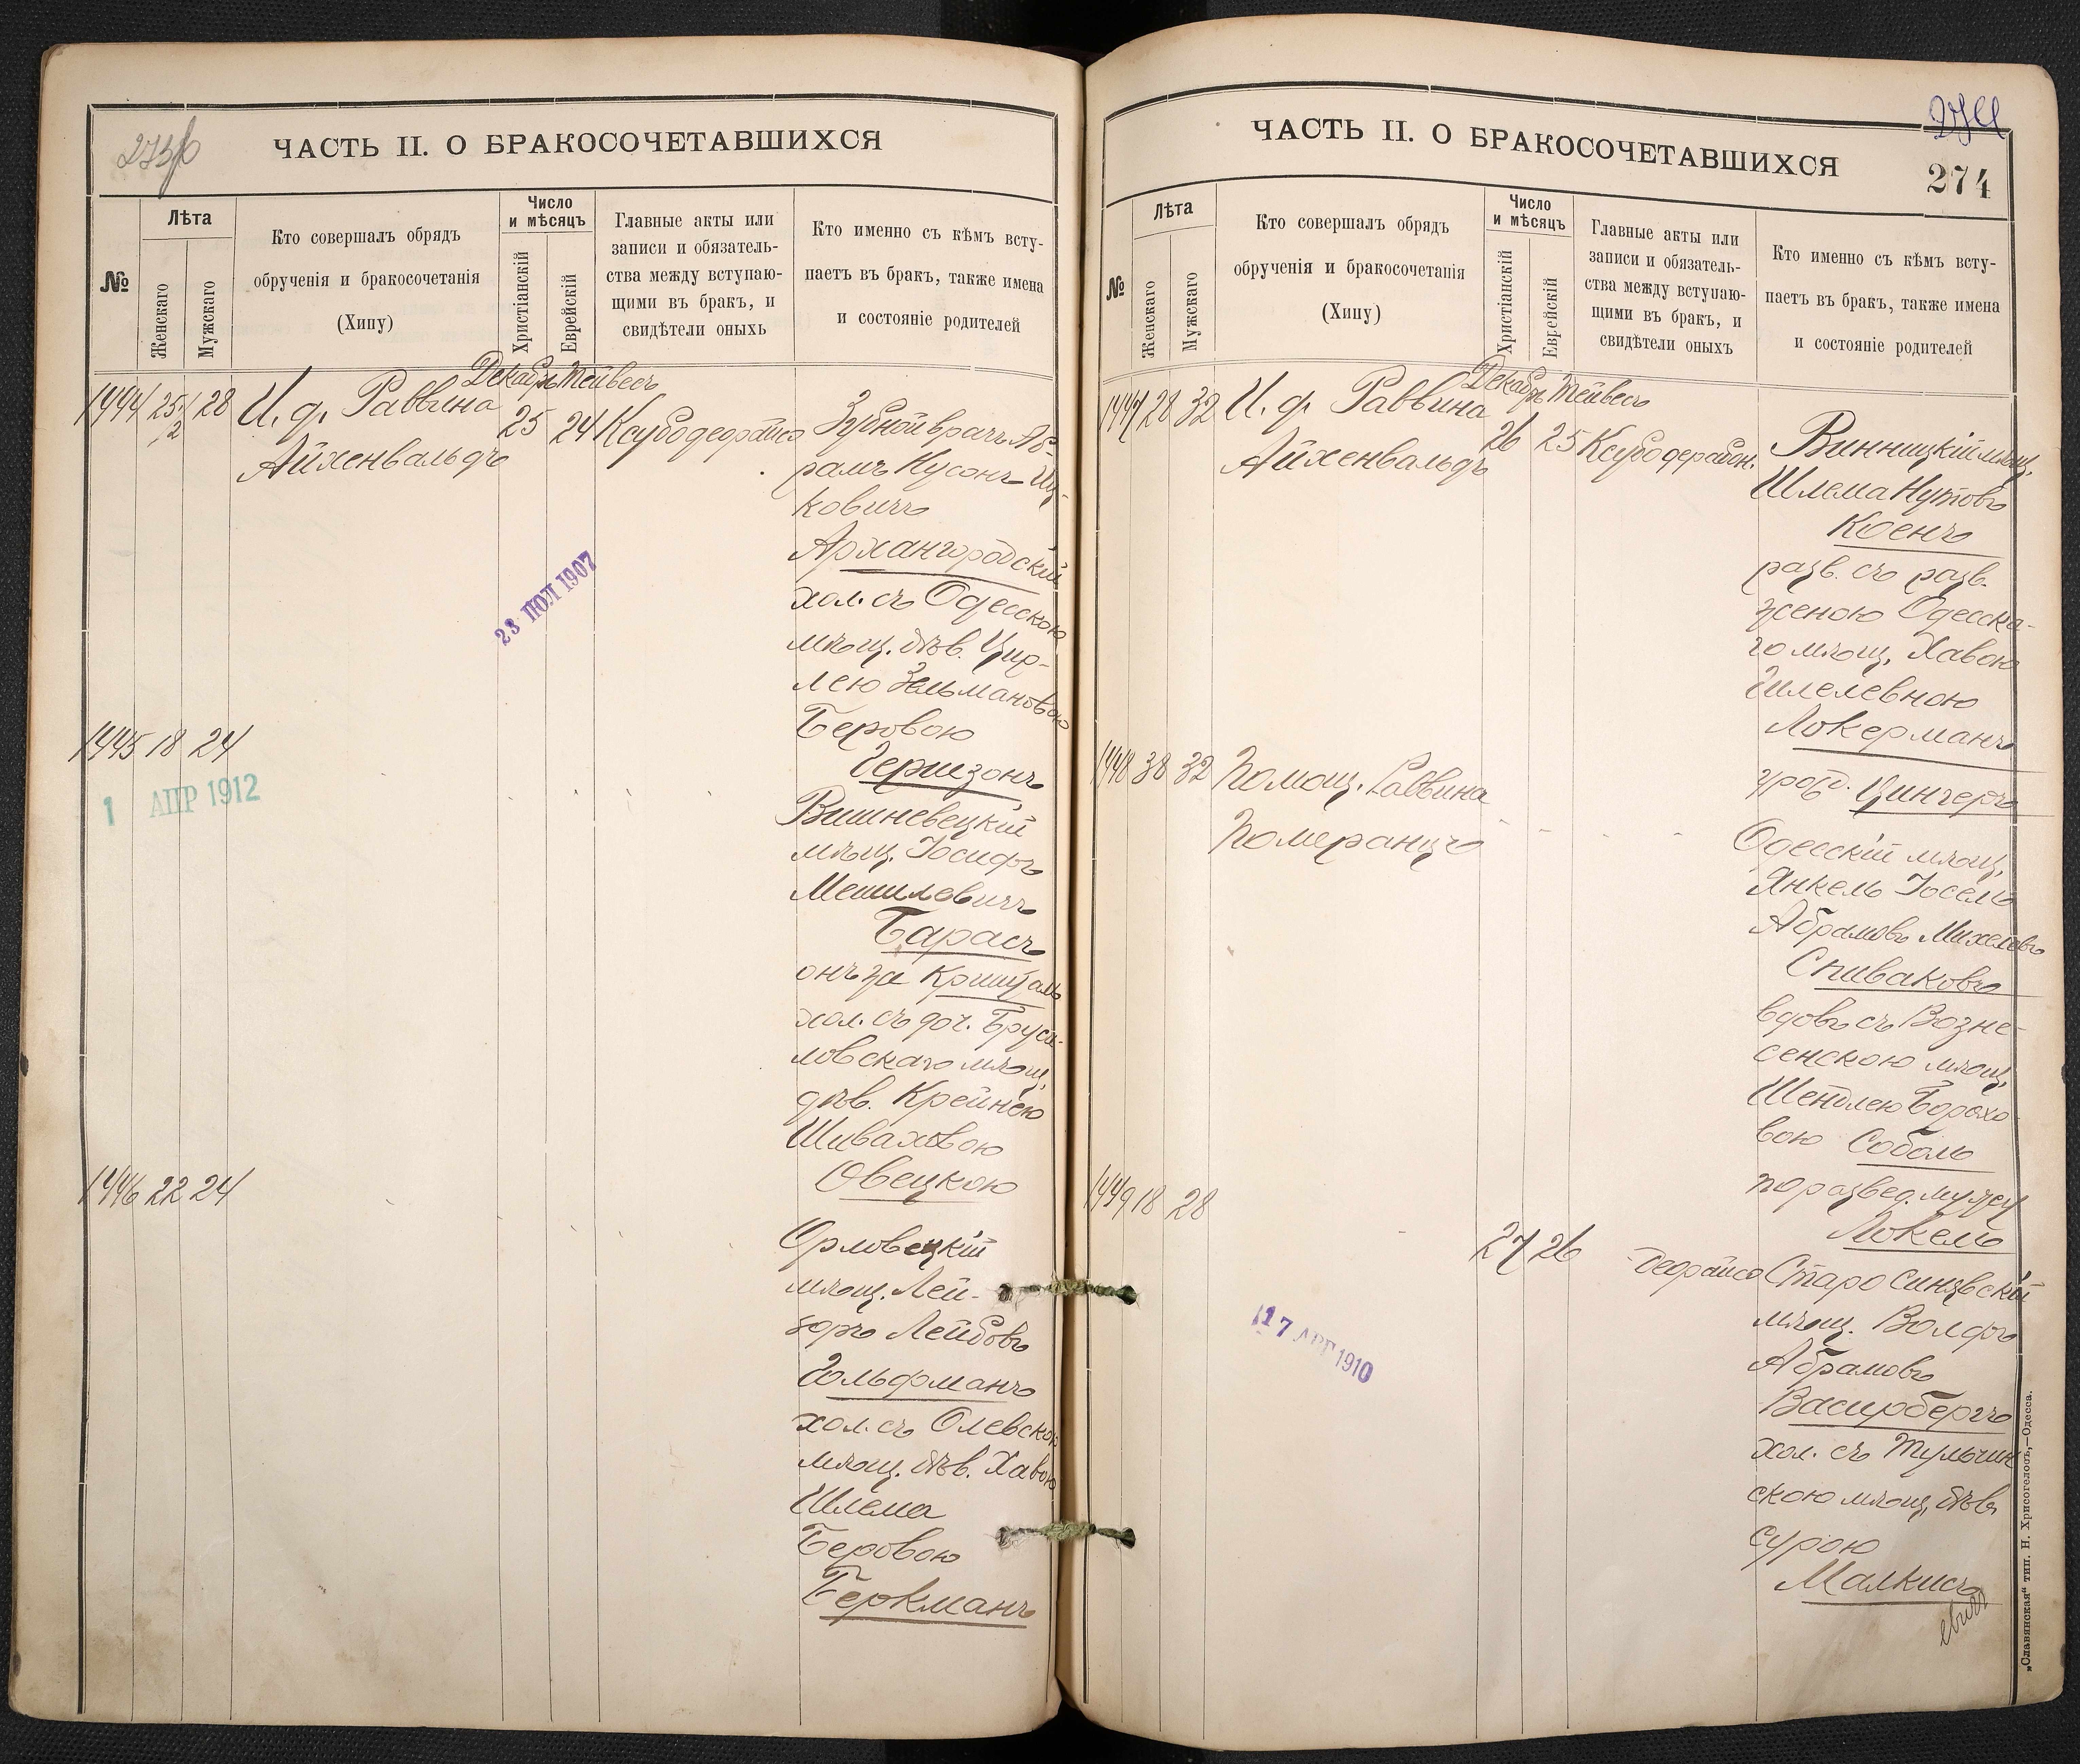 273об
ЧАСТЬ II. О БРАКОСОЧЕТАВШИХСЯ
№
Лѣта
Женскаго
Мужскаго
Кто совершалъ обрядъ
обрученія и бракосочетанія
(Хипу)
Число
и мѣсяцъ
Христіанскій
Еврейскій
Главные акты или
записи и обязатель-
ства между вступаю-
щими въ бракъ, и
свидѣтели оныхъ
Кто именно съ кѣмъ всту-
паетъ въ бракъ, также имена
и состояніе родителей
Декабрь Тейвесъ
1444 25 1/2 28 И. ф. Раввина
Айхенвальдъ
25 24
Зубной врачъ Аб-
рамъ Нусонъ Иц-
ковичъ
Архангородскій
хол. съ Одесскою
мѣщ. дѣв. Цир-
лею Зельмановою
Беровою
Гершзонъ
23 ПОЛ 1907
1445 18 24
1 АПР 1912
Вишневецкій
мѣщ. Іосифъ
Мешилевичъ
Барасъ
онъ же Кришталь
хол. съ доч. Бруси-
ловскаго мѣщ.
дѣв. Крейнею
Шиваховою
Овецкою
1446 22 24
Орловецкій
мѣщ. Лей-
зоръ Лейбовъ
Гольфманъ
хол. съ Олевскою
мѣщ. дѣв. Хавою
Шлема
Беровою
Беркманъ
274
ЧАСТЬ II. О БРАКОСОЧЕТАВШИХСЯ
274
№
Лѣта
Женскаго
Мужскаго
Кто совершалъ обрядъ
обрученія и бракосочетанія
(Хипу)
Число
и мѣсяцъ
Христіанскій
Еврейскій
Главные акты или
записи и обязатель-
ства между вступаю-
щими въ бракъ, и
свидѣтели оныхъ
Кто именно съ кѣмъ всту-
паетъ въ бракъ, также имена
и состояніе родителей
Декабрь Тейвесъ
1447 28 32 И. ф. Раввина
Айхенвальдъ
26 25
Винницкій мѣщ.
Шлема Нутовъ
Коенъ
разв. съ разв.
женою Одесска-
го мѣщ. Хавою
Шлелевною
Локерманъ
урожд. Цингеръ
1448 38 32 Помощ. Раввина
Померанцъ
Одесскій мѣщ.
Янкель Іосель
Абрамовъ Михелевъ
Спиваковъ
вдовъ съ Возне-
сенскою мѣщ.
Шендлею Борохо-
вою Соболь
по развед. мужу
Локель
1449 18 28
27 26
Старо Синявскій
мѣщ. Волфъ
Абрамовъ
Васирбергъ
хол. съ Тульчин
скою мѣщ. дѣв.
Сурою
Малкисъ
евичъ
17 АВГ 1910
„Славянская“ тип. Н. Хрисогелосъ,—Одесса.